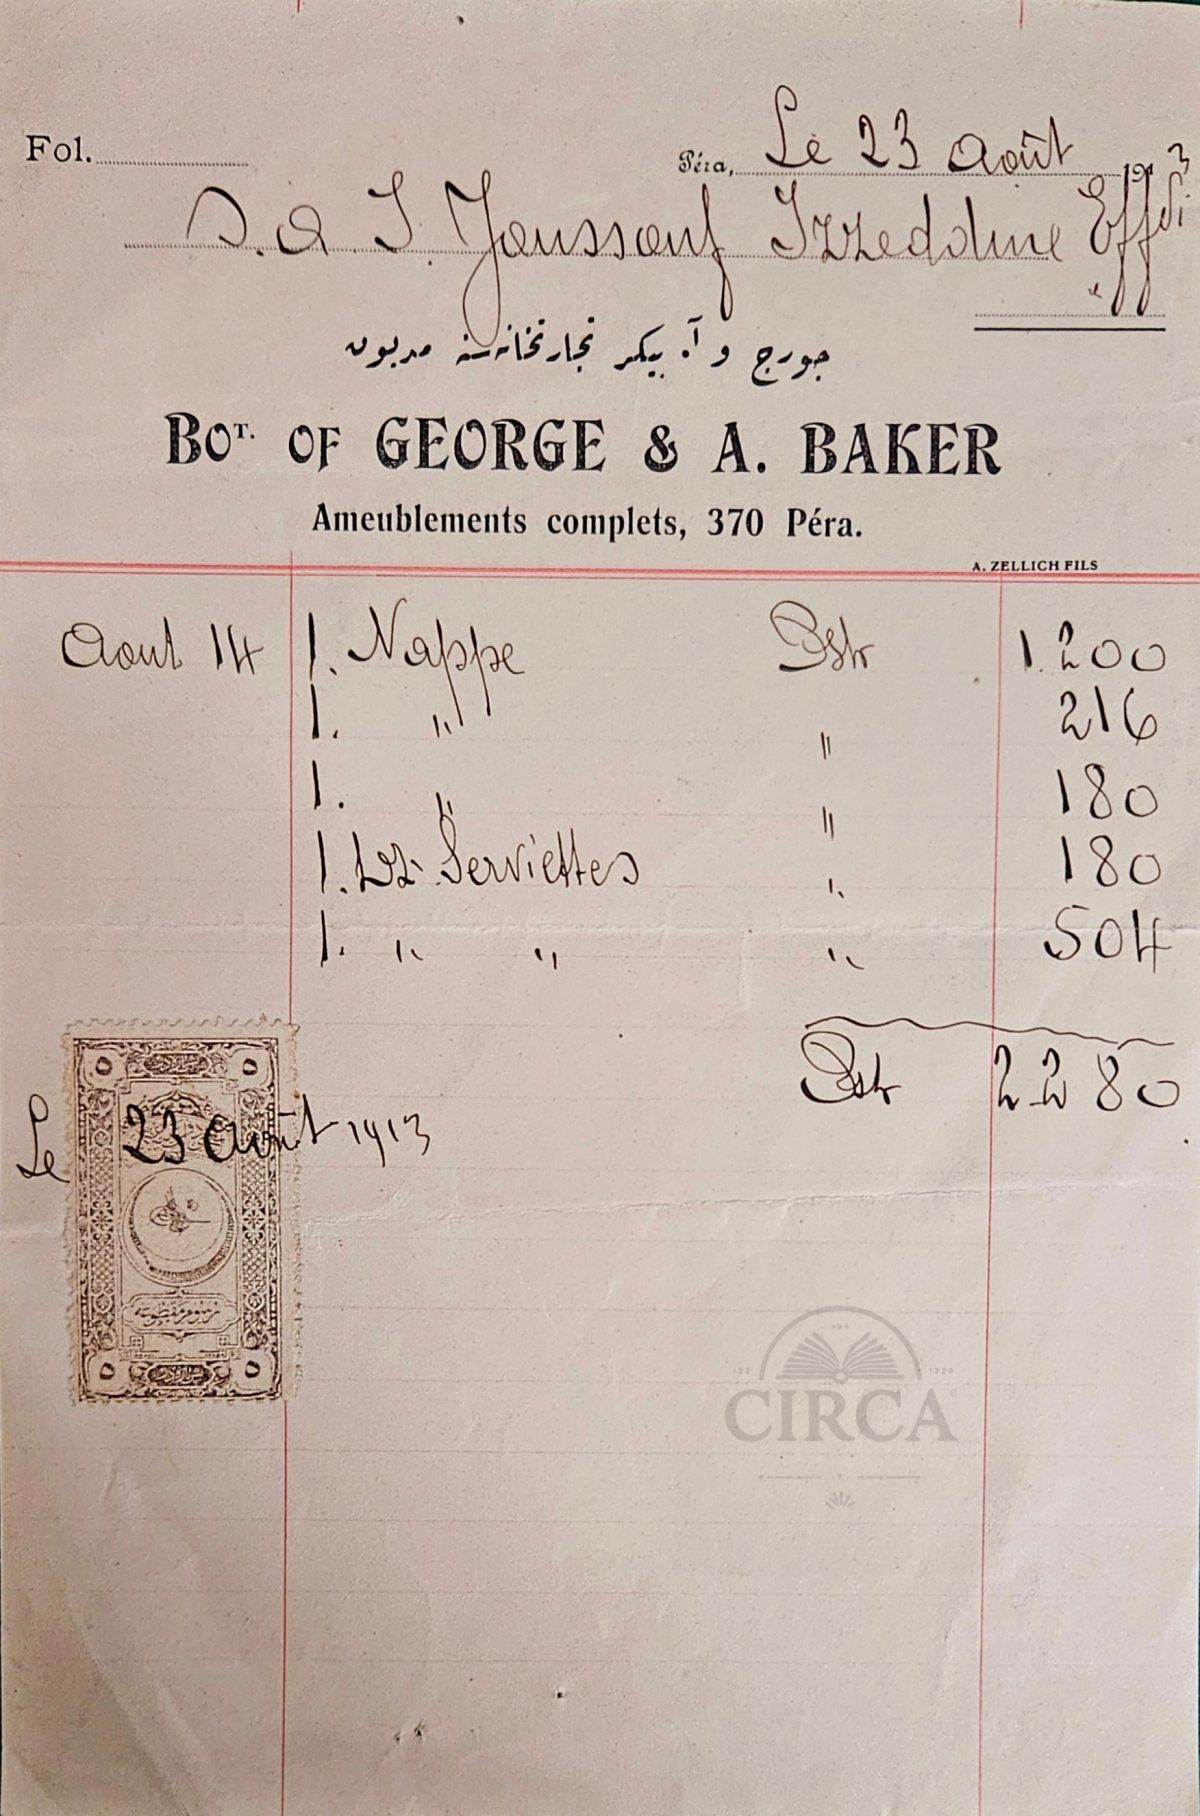 Fol.
Péra, Le 23 Août 1913
S. A I. Youssouf Izzeddine Effdi
جورج و آ. بیکر تجارتخانه‌سنه مدیون
BOT. OF GEORGE & A. BAKER
Ameublements complets, 370 Péra.
A. ZELLICH FILS
Aout 14 1. Nappe Pstr 1.200
1. " " 216
1. " " 180
1. Dz. Serviettes " 180
1. " " " 504
Pstr 2280
٥ ٥
Le 23 Août 1913
٥ ٥
CIRCA